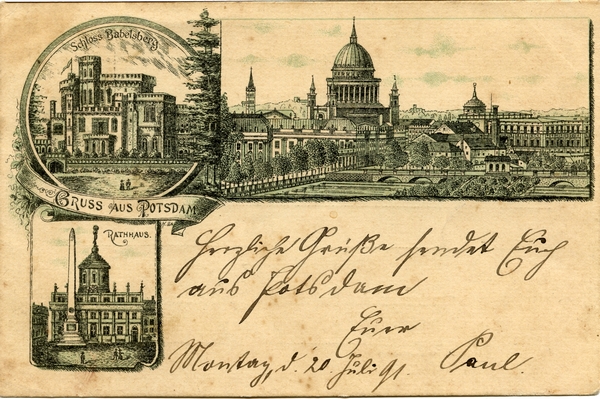 Schloss Babelsberg
GRUSS AUS POTSDAM
RATHHAUS.
Herzliche Grüße sendet Euch
aus Potsdam
Euer
Montag, d. 20 Juli 91. Paul.